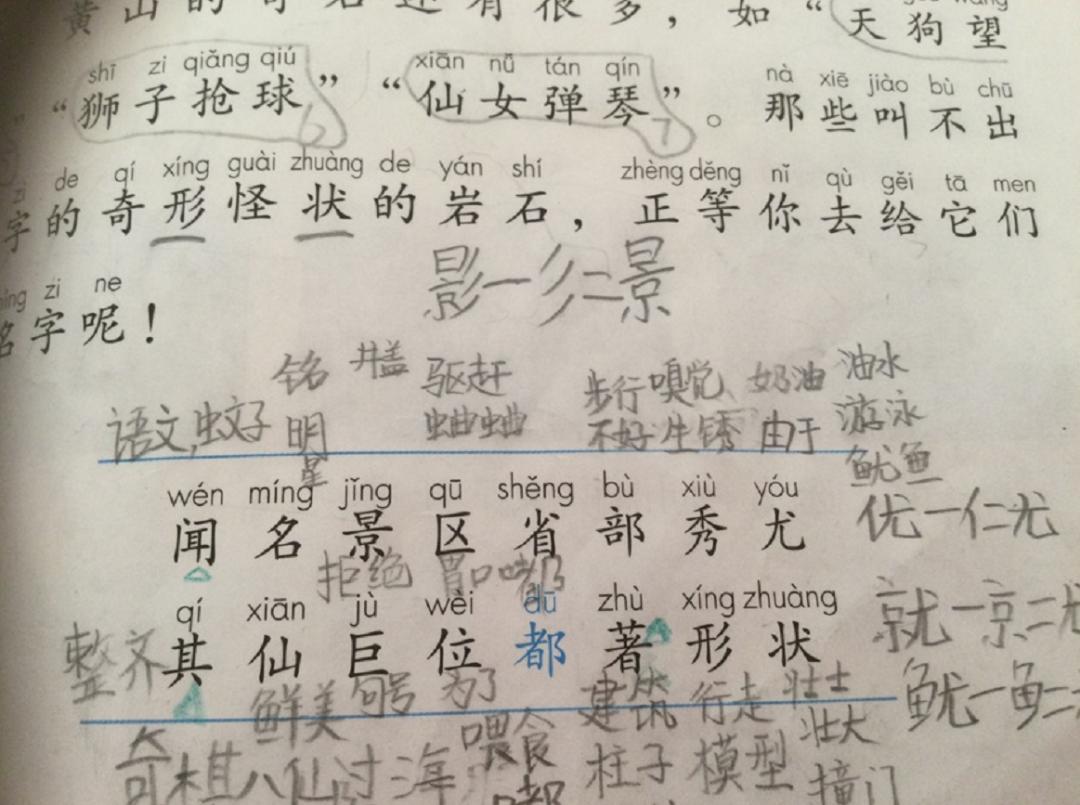 黄山的奇石还有很多，如“天狗望
shī zi qiǎng qiú xiān nǚ tán qín nà xiē jiào bù chū
“狮子抢球”“仙女弹琴”。那些叫不出
zi de qí xíng guài zhuàng de yán shí zhèng děng nǐ qù gěi tā men
字的奇形怪状的岩石，正等你去给它们
míng zi ne
名字呢！
影一彡二景
铭 井盖 驱赶 步行 嗅觉 奶油 油水
语文,蚊子 明星 蛐蛐 不好 生锈 由于 游泳
鱿鱼
wén míng jǐng qū shěng bù xiù yóu
闻 名 景 区 省 部 秀 尤
优一仁尤
拒绝 胃口 嘟
qí xiān jù wèi dū zhù xíng zhuàng
整齐 其 仙 巨 位 都 著 形 状
就一京二尤
鲜美 句号 为了 建筑 行走 壮士
鱿一鱼二
奇 棋 八仙过海 喂食 柱子 模型 壮大
嘟 撞门